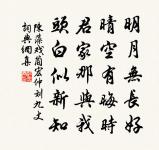 明月無長好
晴空有晦時
君家那與我
頭白似新知
陳藻戲簡宏仲劉九丈
詞典網集